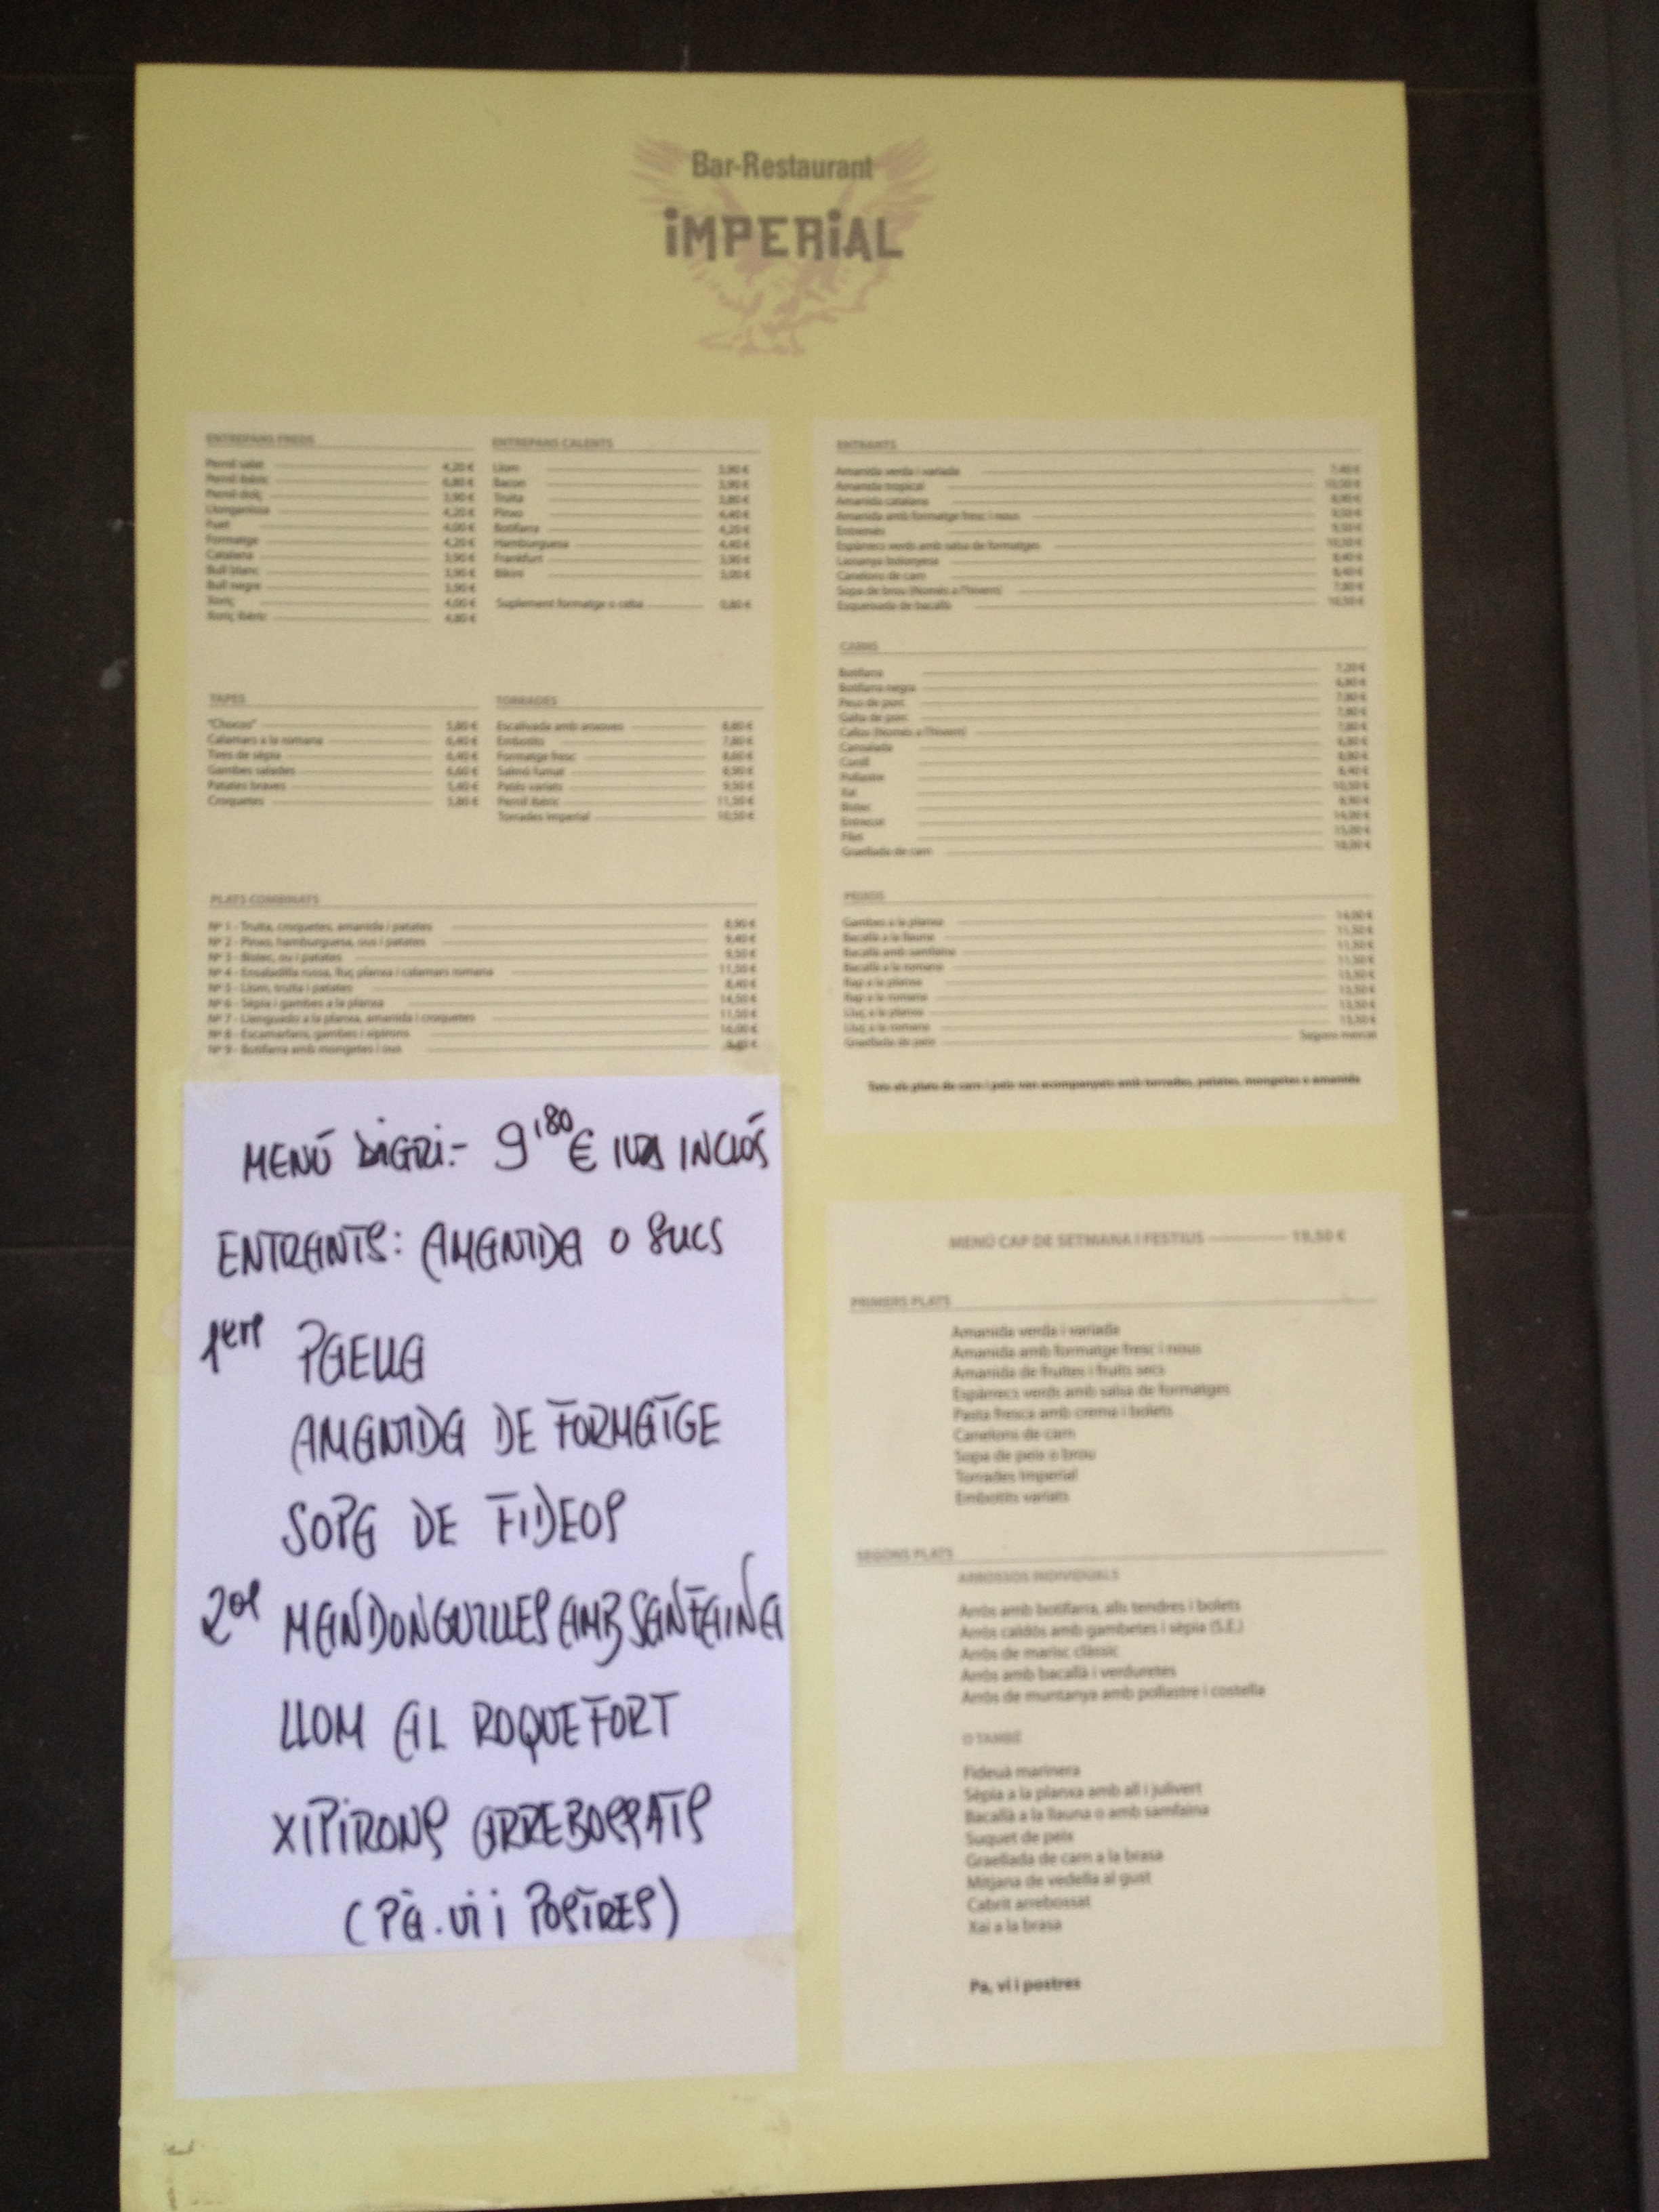 Bar-Restaurant
iMPERiAL
ENTREPANS FREDS
Pernil salat 4,20 €
Pernil ibèric 6,80 €
Pernil dolç 3,90 €
Llonganissa 4,20 €
Fuet 4,00 €
Formatge 4,20 €
Catalana 3,90 €
Bull blanc 3,90 €
Bull negre 3,90 €
Xoriç 4,00 €
Xoriç ibèric 4,80 €
ENTREPANS CALENTS
Llom 3,90 €
Bacon 3,90 €
Truita 3,80 €
Pinxo 4,40 €
Botifarra 4,20 €
Hamburguesa 4,40 €
Frankfurt 3,90 €
Bikini 3,00 €
Suplement formatge o ceba 0,80 €
TAPES
"Chocos" 5,80 €
Calamars a la romana 6,40 €
Tires de sèpia 6,40 €
Gambes salades 6,60 €
Patates braves 5,40 €
Croquetes 5,80 €
TORRADES
Escalivada amb anxoves 8,80 €
Embotits 7,80 €
Formatge fresc 8,60 €
Salmó fumat 8,90 €
Patés variats 9,50 €
Pernil ibèric 11,50 €
Torrades Imperial 10,50 €
PLATS COMBINATS
Nº 1 - Truita, croquetes, amanida i patates 8,90 €
Nº 2 - Pinxo, hamburguesa, ous i patates 9,40 €
Nº 3 - Bistec, ou i patates 9,50 €
Nº 4 - Ensaladilla russa, lluç planxa i calamars romana 11,50 €
Nº 5 - Llom, truita i patates 8,40 €
Nº 6 - Sèpia i gambes a la planxa 14,50 €
Nº 7 - Llenguado a la planxa, amanida i croquetes 11,50 €
Nº 8 - Escamarlans, gambes i xipirons 16,00 €
Nº 9 - Botifarra amb mongetes i ous
MENÚ DIARI:- 9'80 € IVA INCLÓS
ENTRANTS: AMANIDA O SUCS
1ers PAELLA
AMANIDA DE FORMATGE
SOPA DE FIDEOS
2os MANDONGUILLES AMB SANFAINA
LLOM AL ROQUEFORT
XIPIRONS ARREBOSSATS
(PA. VI i POSTRES)
ENTRANTS
Amanida verda i variada 7,40 €
Amanida tropical 10,50 €
Amanida catalana 8,90 €
Amanida amb formatge fresc i nous 9,50 €
Entremès 9,50 €
Espàrrecs verds amb salsa de formatges 10,50 €
Lassanya bolonyesa 8,40 €
Canelons de carn 8,40 €
Sopa de brou (Només a l'hivern) 7,80 €
Esqueixada de bacallà 10,50 €
CARNS
Botifarra 7,20 €
Botifarra negra 6,90 €
Peus de porc 7,80 €
Galta de porc 7,90 €
Callos (Només a l'hivern) 7,80 €
Cansalada 6,80 €
Conill 8,80 €
Pollastre 8,40 €
Xai 10,50 €
Bistec 8,90 €
Entrecot 14,00 €
Filet 15,00 €
Graellada de carn 18,00 €
PEIXOS
Gambes a la planxa 14,00 €
Bacallà a la llauna 11,50 €
Bacallà amb samfaina 11,50 €
Bacallà a la romana 11,50 €
Rap a la planxa 13,50 €
Rap a la romana 13,50 €
Lluç a la planxa 13,50 €
Lluç a la romana 13,50 €
Graellada de peix Segons mercat
Tots els plats de carn i peix van acompanyats amb torrades, patates, mongetes o amanida
MENÚ CAP DE SETMANA I FESTIUS 19,50 €
PRIMERS PLATS
Amanida verda i variada
Amanida amb formatge fresc i nous
Amanida de fruites i fruits secs
Espàrrecs verds amb salsa de formatges
Pasta fresca amb crema i bolets
Canelons de carn
Sopa de peix o brou
Torrades Imperial
Embotits variats
SEGONS PLATS
ARROSSOS INDIVIDUALS
Arròs amb botifarra, alls tendres i bolets
Arròs caldós amb gambetes i sèpia (S.E.)
Arròs de marisc clàssic
Arròs amb bacallà i verduretes
Arròs de muntanya amb pollastre i costella
O TAMBÉ
Fideuà marinera
Sèpia a la planxa amb all i julivert
Bacallà a la llauna o amb samfaina
Suquet de peix
Graellada de carn a la brasa
Mitjana de vedella al gust
Cabrit arrebossat
Xai a la brasa
Pa, vi i postres